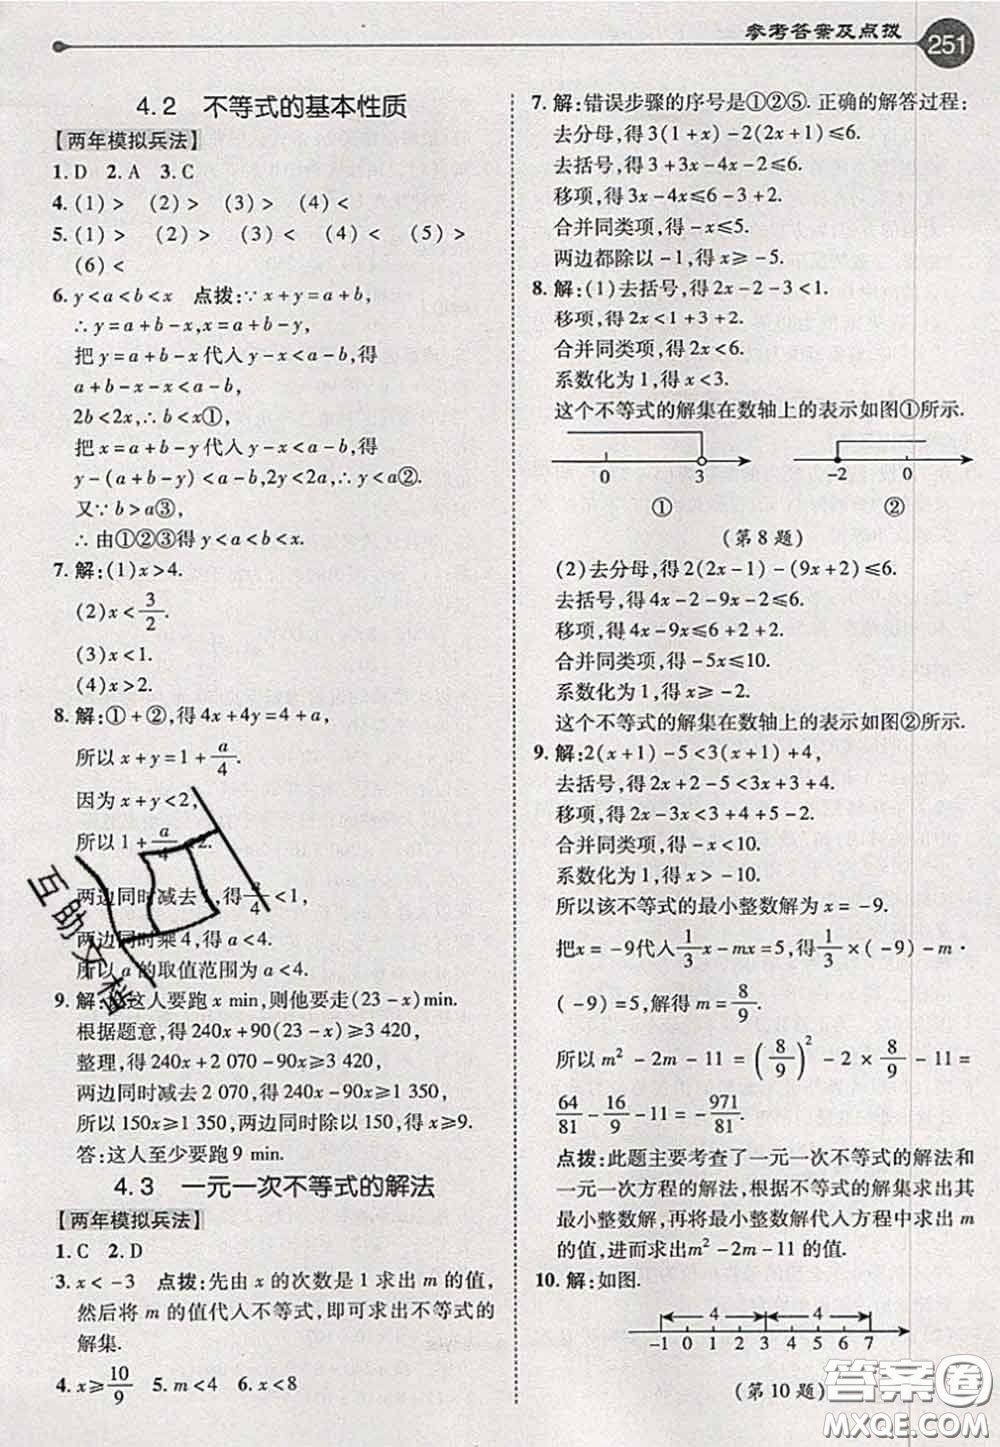 参考答案及点拨
251
4.2 不等式的基本性质
【两年模拟兵法】
1. D 2. A 3. C
4. (1) > (2) > (3) > (4) <
5. (1) > (2) > (3) < (4) < (5) >
(6) <
6. y<a<b<x 点拨:∵x+y=a+b,
∴y=a+b-x,x=a+b-y,
把y=a+b-x代入y-x<a-b,得
a+b-x-x<a-b,
2b<2x,∴b<x①,
把x=a+b-y代入y-x<a-b得
y-(a+b-y)<a-b,2y<2a,∴y<a②.
又∵b>a③,
∴由①②③得y<a<b<x.
7. 解:(1)x>4.
(2)x<3/2.
(3)x<1.
(4)x>2.
8. 解:①+②,得4x+4y=4+a,
所以x+y=1+a/4.
因为x+y<2,
所以1+a/4 2.
两边同时减去1,得a/4<1,
两边同时乘4,得a<4.
所以a的取值范围为a<4.
9. 解: 这人要跑x min,则他要走(23-x)min.
根据题意,得240x+90(23-x)≥3 420,
整理,得240x+2 070-90x≥3 420,
两边同时减去2 070,得240x-90x≥1 350,
所以150x≥1 350,两边同时除以150,得x≥9.
答:这人至少要跑9 min.
4.3 一元一次不等式的解法
【两年模拟兵法】
1. C 2. D
3. x<-3 点拨:先由x的次数是1求出m的值,
然后将m的值代入不等式,即可求出不等式的
解集.
4. x≥10/9 5. m<4 6. x<8
7. 解:错误步骤的序号是①②⑤. 正确的解答过程:
去分母,得3(1+x)-2(2x+1)≤6.
去括号,得3+3x-4x-2≤6.
移项,得3x-4x≤6-3+2.
合并同类项,得-x≤5.
两边都除以-1,得x≥-5.
8. 解:(1)去括号,得2x-2-3<1.
移项,得2x<1+3+2.
合并同类项,得2x<6.
系数化为1,得x<3.
这个不等式的解集在数轴上的表示如图①所示.
0 3 -2 0
① ②
(第8题)
(2)去分母,得2(2x-1)-(9x+2)≤6.
去括号,得4x-2-9x-2≤6.
移项,得4x-9x≤6+2+2.
合并同类项,得-5x≤10.
系数化为1,得x≥-2.
这个不等式的解集在数轴上的表示如图②所示.
9. 解:2(x+1)-5<3(x+1)+4,
去括号,得2x+2-5<3x+3+4.
移项,得2x-3x<3+4+5-2.
合并同类项,得-x<10.
系数化为1,得x>-10.
所以该不等式的最小整数解为x=-9.
把x=-9代入1/3x-mx=5,得1/3×(-9)-m·
(-9)=5,解得m=8/9.
所以m²-2m-11=(8/9)²-2×8/9-11=
64/81-16/9-11=-971/81.
点拨:此题主要考查了一元一次不等式的解法和
一元一次方程的解法,根据不等式的解集求出其
最小整数解,再将最小整数解代入方程中求出m
的值,进而求出m²-2m-11的值.
10. 解:如图.
4 4
-1 0 1 2 3 4 5 6 7
(第10题)
互助文档
答案圈
MXQE.COM